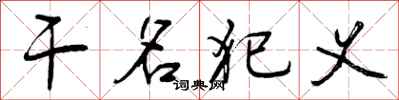 干名犯义
词典网